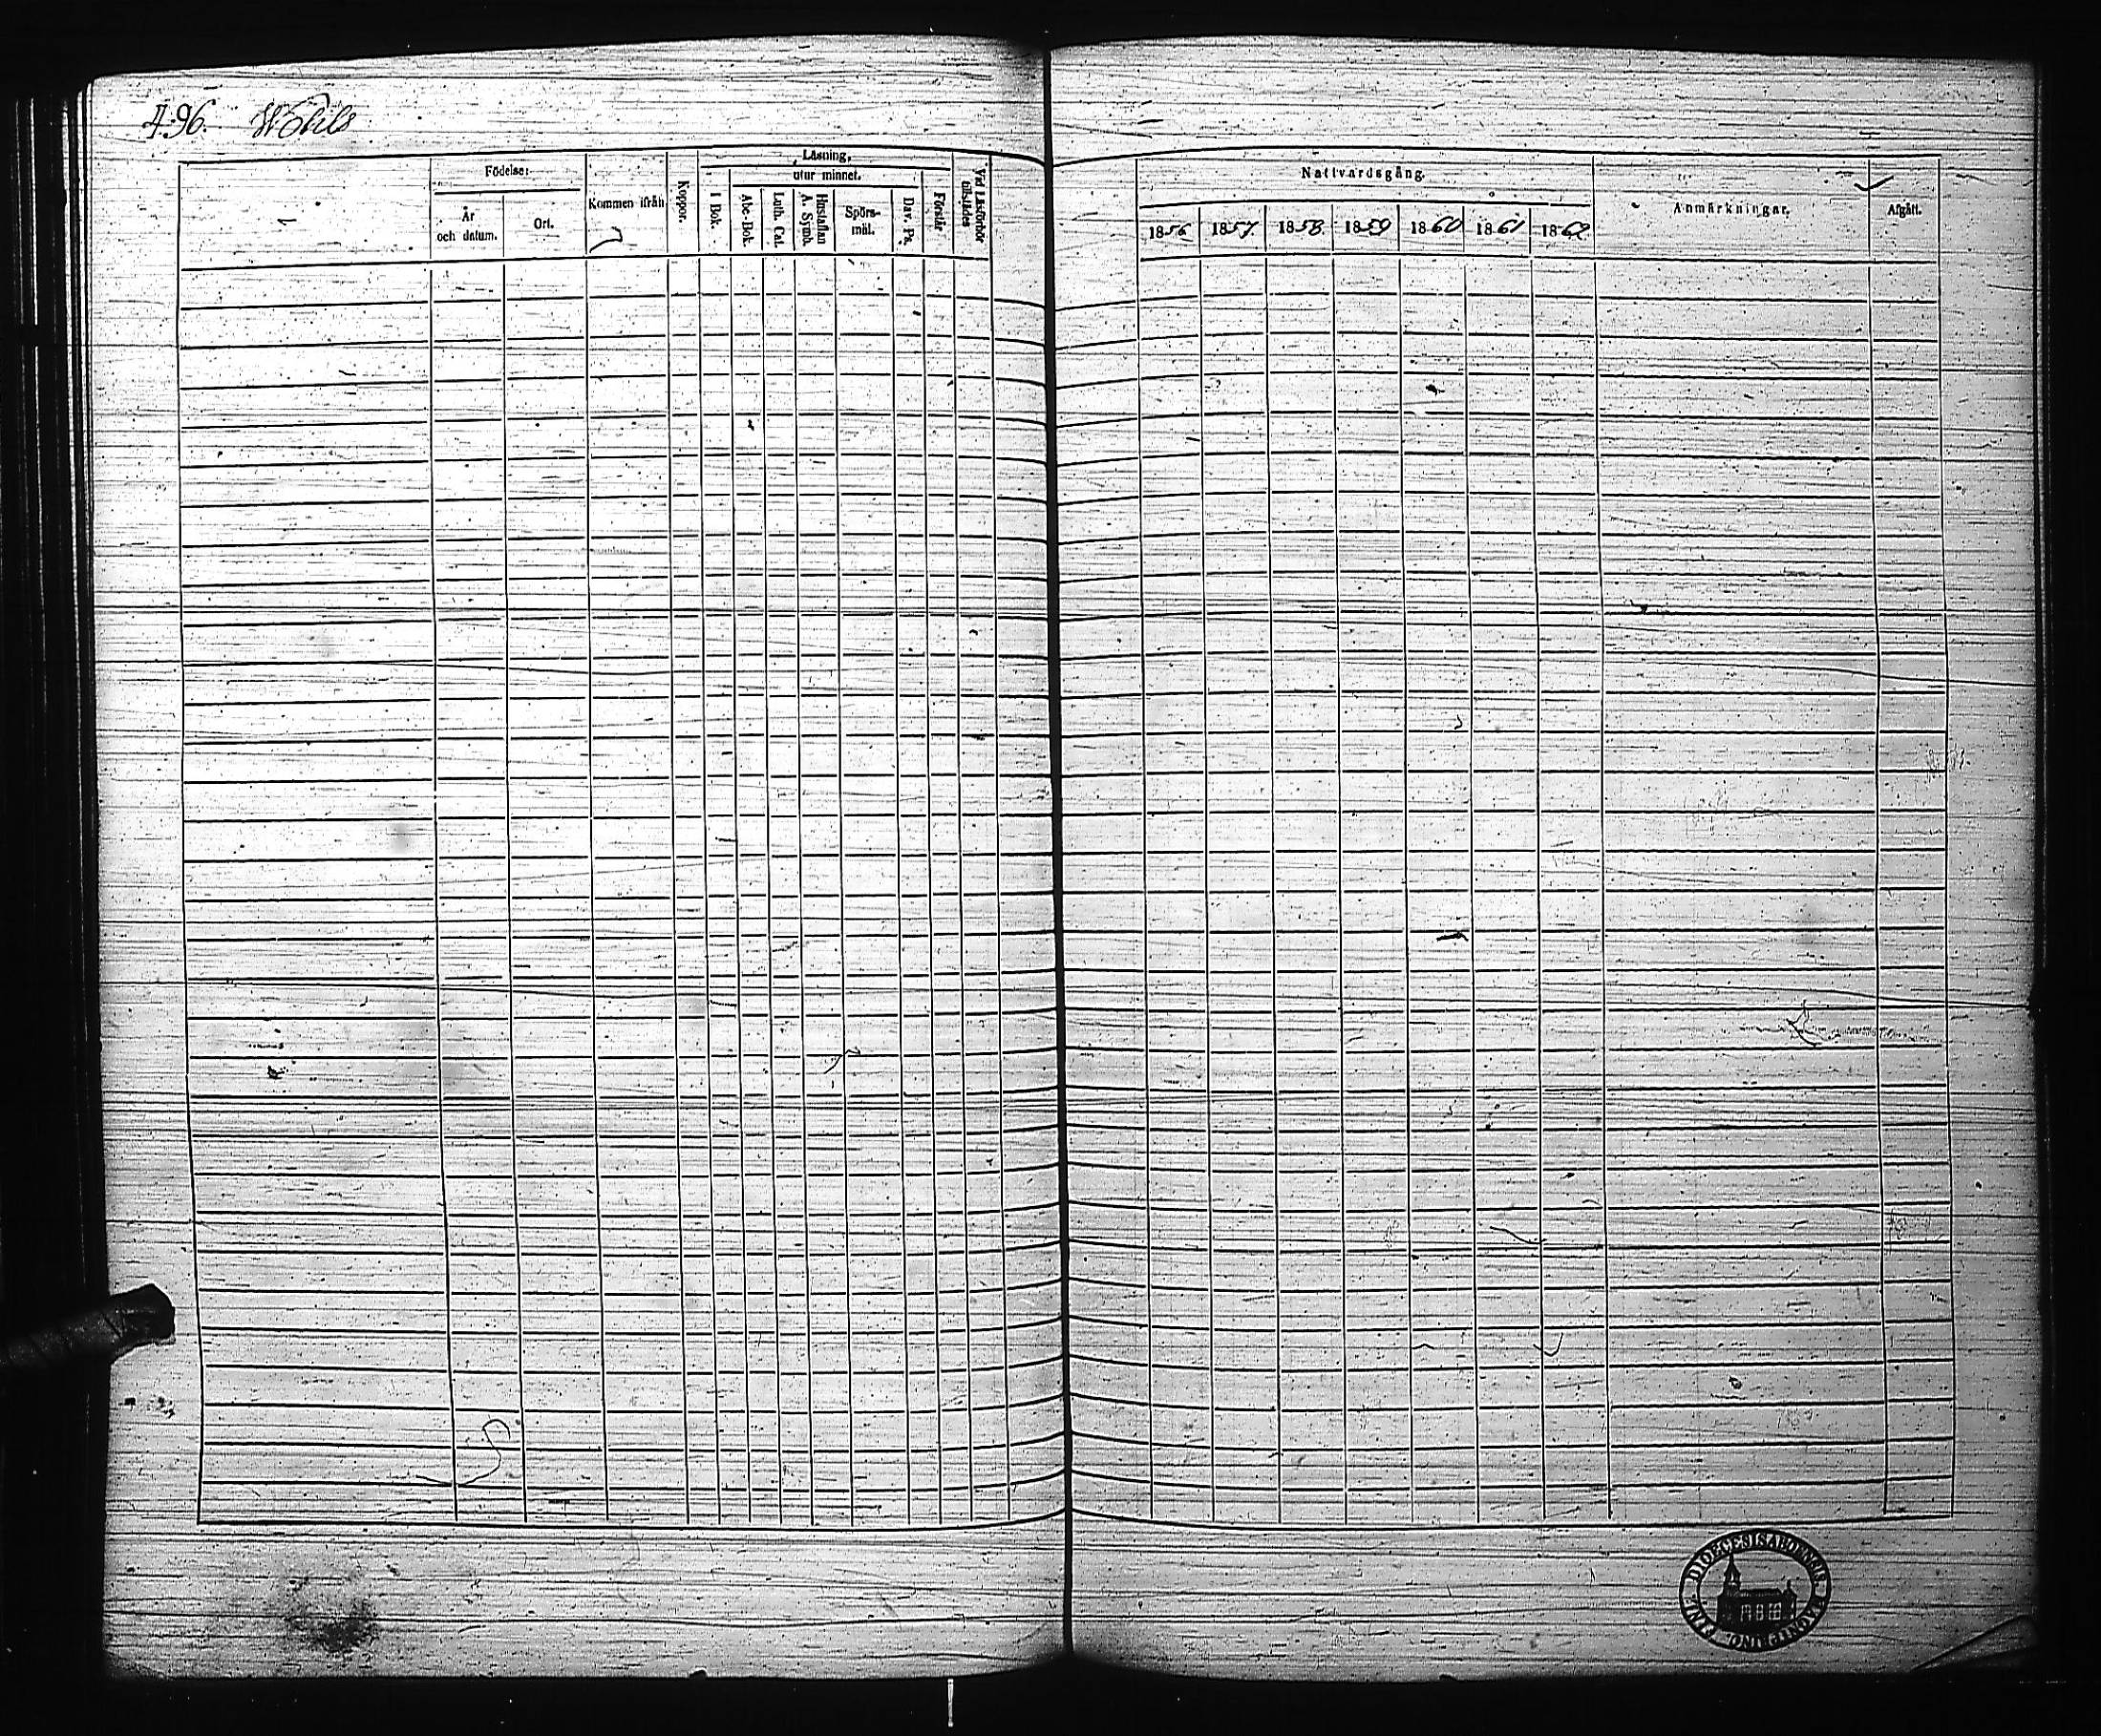 496.
Läsning,
Födelse:
utur minnet.
Kommen ifrån
Koppor.
I Bok.
Abc-Bok.
Luth. Cat.
Hustaflan
A. Symb.
Spörs-
mål.
Dav. Ps.
Förstår
Vid Läsförhör
tillstädes
År
och datum.
Ort.
Nattvardsgång.
Anmärkningar.
Afgått.
1856 1857 1858 1859 1860 1861 1862